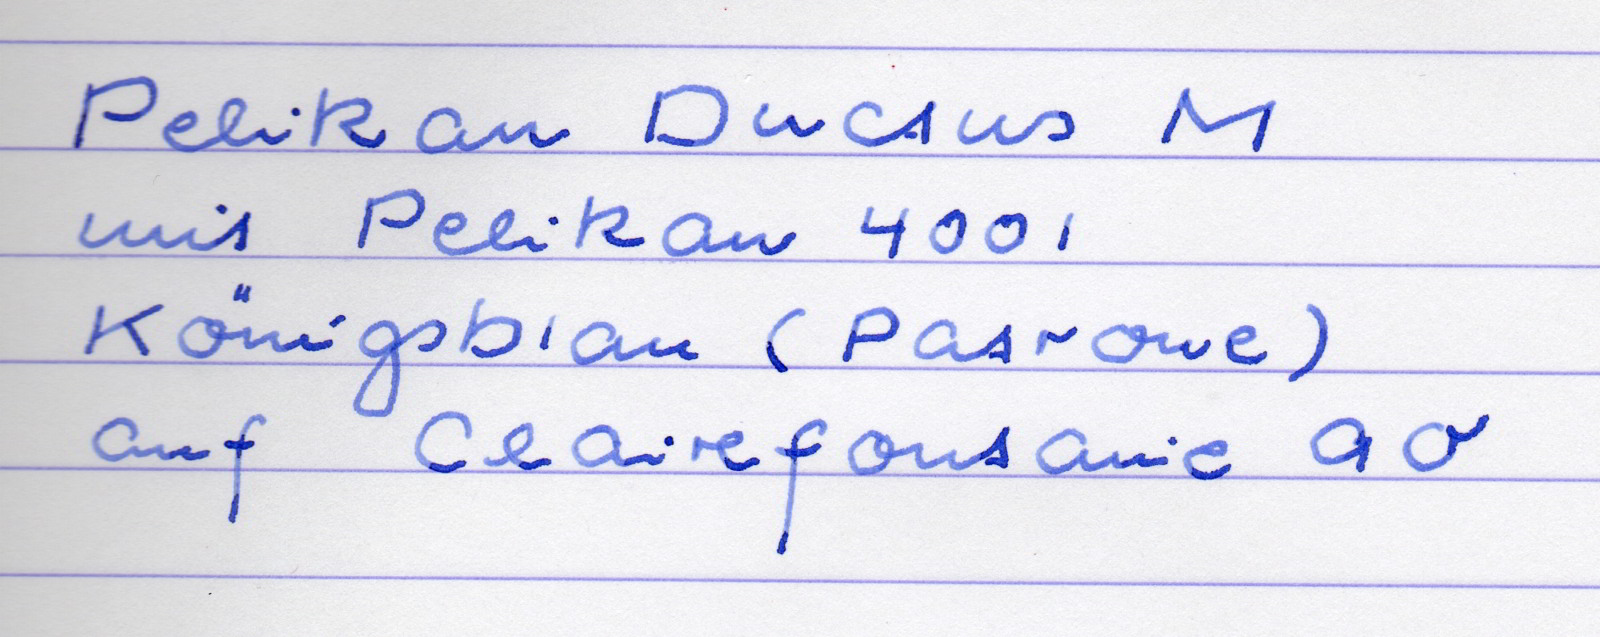 Pelikan Ductus M
mit Pelikan 4001
Königsblau (Patrone)
auf Clairefontaine 90